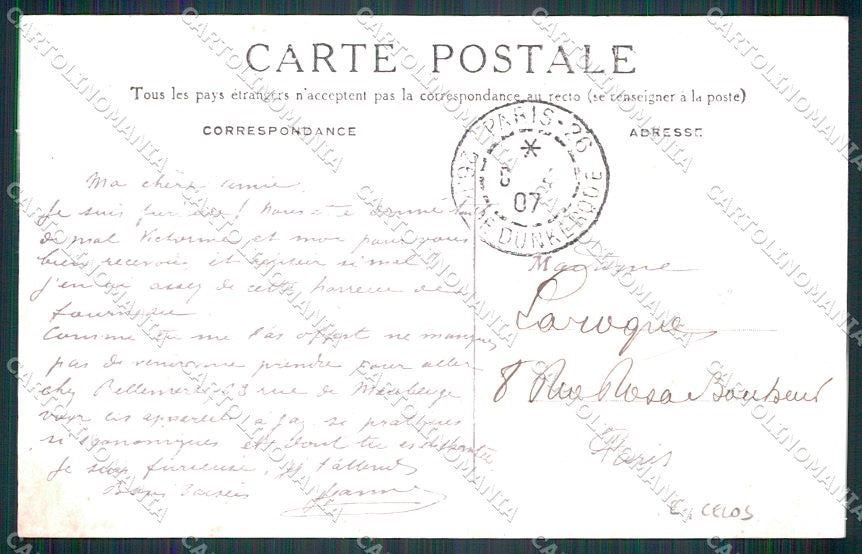 CARTE POSTALE
Tous les pays étrangers n'acceptent pas la correspondance au recto (se renseigner à la poste)
CORRESPONDANCE
ADRESSE
PARIS-26
*
07
DE DUNKERQUE
Ma chère amie.
Je suis furieuse! Nous
de mal Victorine et moi pour vous
bien recevoir et si mal
j'en ai assez de cette horreur de
fourneau
comme tu me l'as offert ne manques
pas de venir me prendre pour aller
chez Bellemere 23 rue de Maubeuge
voir les appareils à gaz si pratiques
si économiques et dont tu es
Je suis furieuse, et t'attends
Bons baisers Jeanne
Madame
Laroque
8 Rue Rosa Bonheur
Paris
CELOS
CARTOLINOMANIA